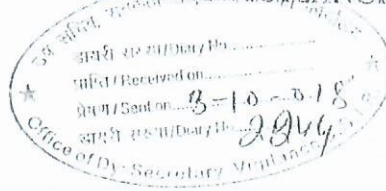 उप सचिव,
डायरी संख्या/Diary No..............
प्राप्ति/Received on..............
प्रेषण/Sent on..3-10-018
डायरी संख्या/Diary No. 2244
Office of Dy. Secretary Vigilance